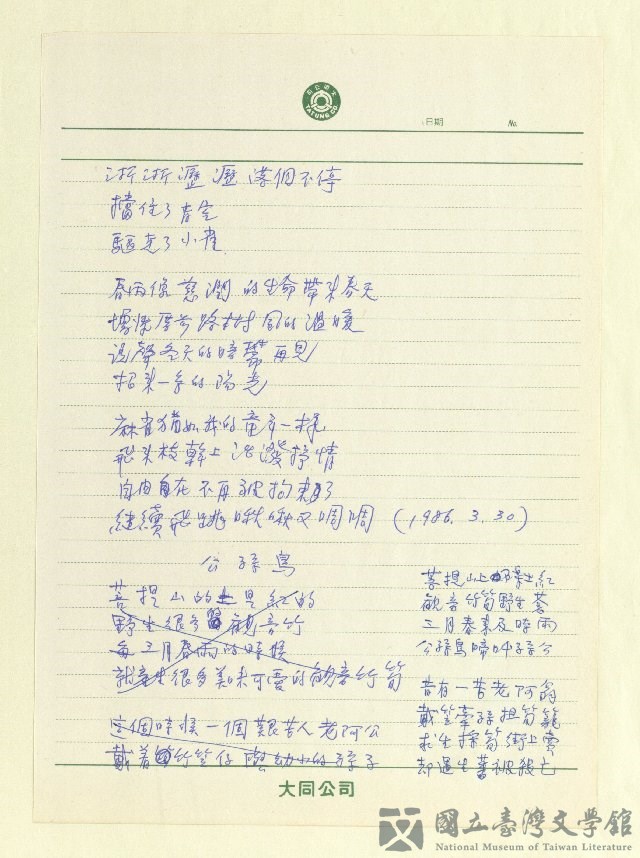 大同公司
TATUNG CO.
日期
No.
淅淅瀝瀝落個不停
擋住了青空
驅走了小雀
春雨像慈潤的生命帶來春天
的溫暖
說聲冬天的暗鬱再見
招來一季的陽光
麻雀猶如我的童年一樣
飛來枝幹上活潑抒情
自由自在不再被拘束了
繼續飛跳啾啾又啁啁 (1986.3.30)
公孫鳥
菩提山的土是紅的
野生很多觀音竹
每三月春雨的時候
就產生很多美味可愛的觀音竹筍
這個時候一個艱苦人老阿公
戴着竹笠仔與幼小的孫子
菩提山上土紅
觀音竹筍野生叢
三月春來及時雨
公孫鳥啼叫孫公
昔有一苦老阿翁
戴笠牽孫担筍籠
求生採筍街上賣
却遇生蕃被殺亡
大同公司
國立臺灣文學館
National Museum of Taiwan Literature